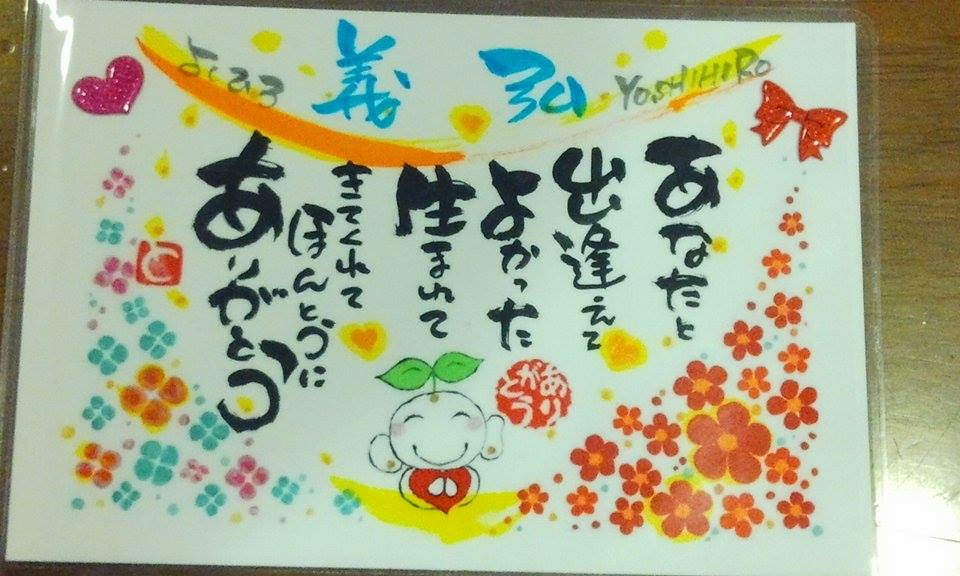 よしひろ
義弘
YOSHIHIRO
あなたと
出逢えて
よかった
生まれて
きてくれて
ほんとうに
ありがとう
ありがとう